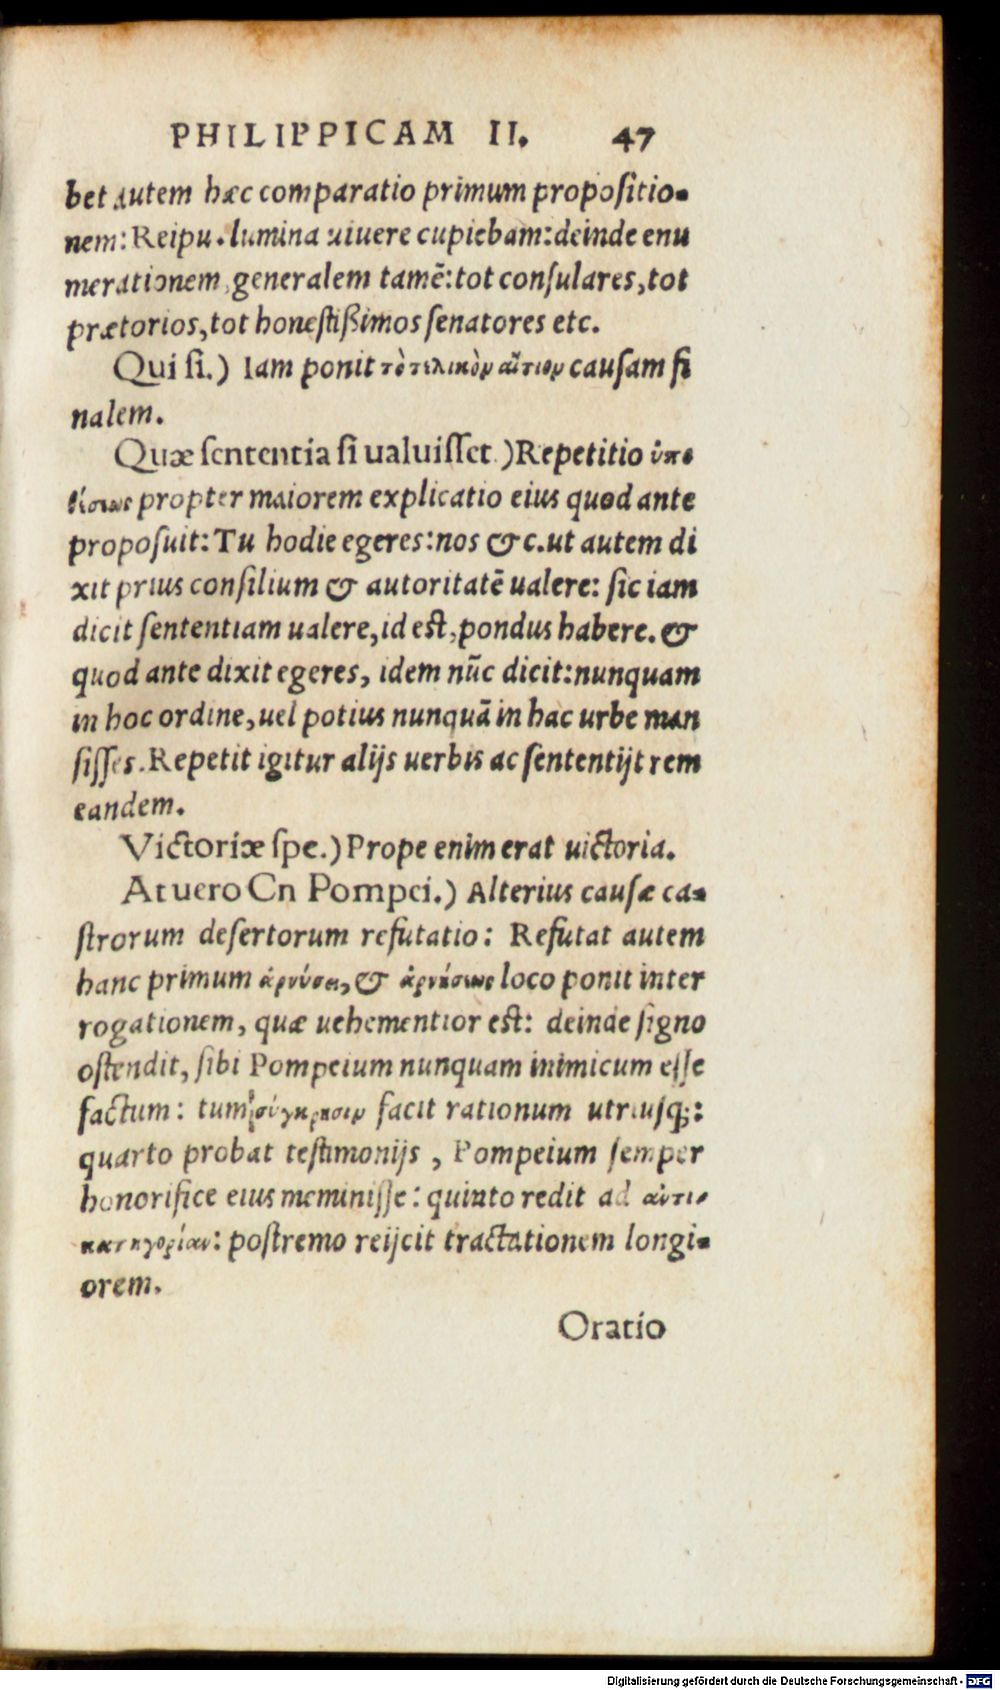 PHILIPPICAM II. 47
bet autem hæc comparatio primum propositio-
nem: Reipu. lumina uiuere cupiebam: deinde enu
merationem, generalem tamē: tot consulares, tot
prætorios, tot honestißimos senatores etc.
Qui si.) Iam ponit τὸ τελικὸν αἴτιον causam fi
nalem.
Quæ sententia si ualuisset.) Repetitio ὑπο-
θέσεως propter maiorem explicatio eius quod ante
proposuit: Tu hodie egeres: nos &c. ut autem di
xit prius consilium & autoritatē ualere: sic iam
dicit sententiam ualere, id est, pondus habere. &
quod ante dixit egeres, idem nūc dicit: nunquam
in hoc ordine, uel potius nunquā in hac urbe man
sisses. Repetit igitur alijs uerbis ac sententijt rem
eandem.
Victoriæ spe.) Prope enim erat uictoria.
At uero Cn Pompei.) Alterius causæ ca-
strorum desertorum refutatio: Refutat autem
hanc primum ἀρνήσει, & ἀρνήσεως loco ponit inter
rogationem, quæ uehementior est: deinde signo
ostendit, sibi Pompeium nunquam inimicum esse
factum: tum σύγκρισιν facit rationum utriusq;:
quarto probat testimonijs, Pompeium semper
honorifice eius meminisse: quinto redit ad ἀντι-
κατηγορίαν: postremo reijcit tractationem longi-
orem.
Oratio
Digitalisierung gefördert durch die Deutsche Forschungsgemeinschaft - DFG